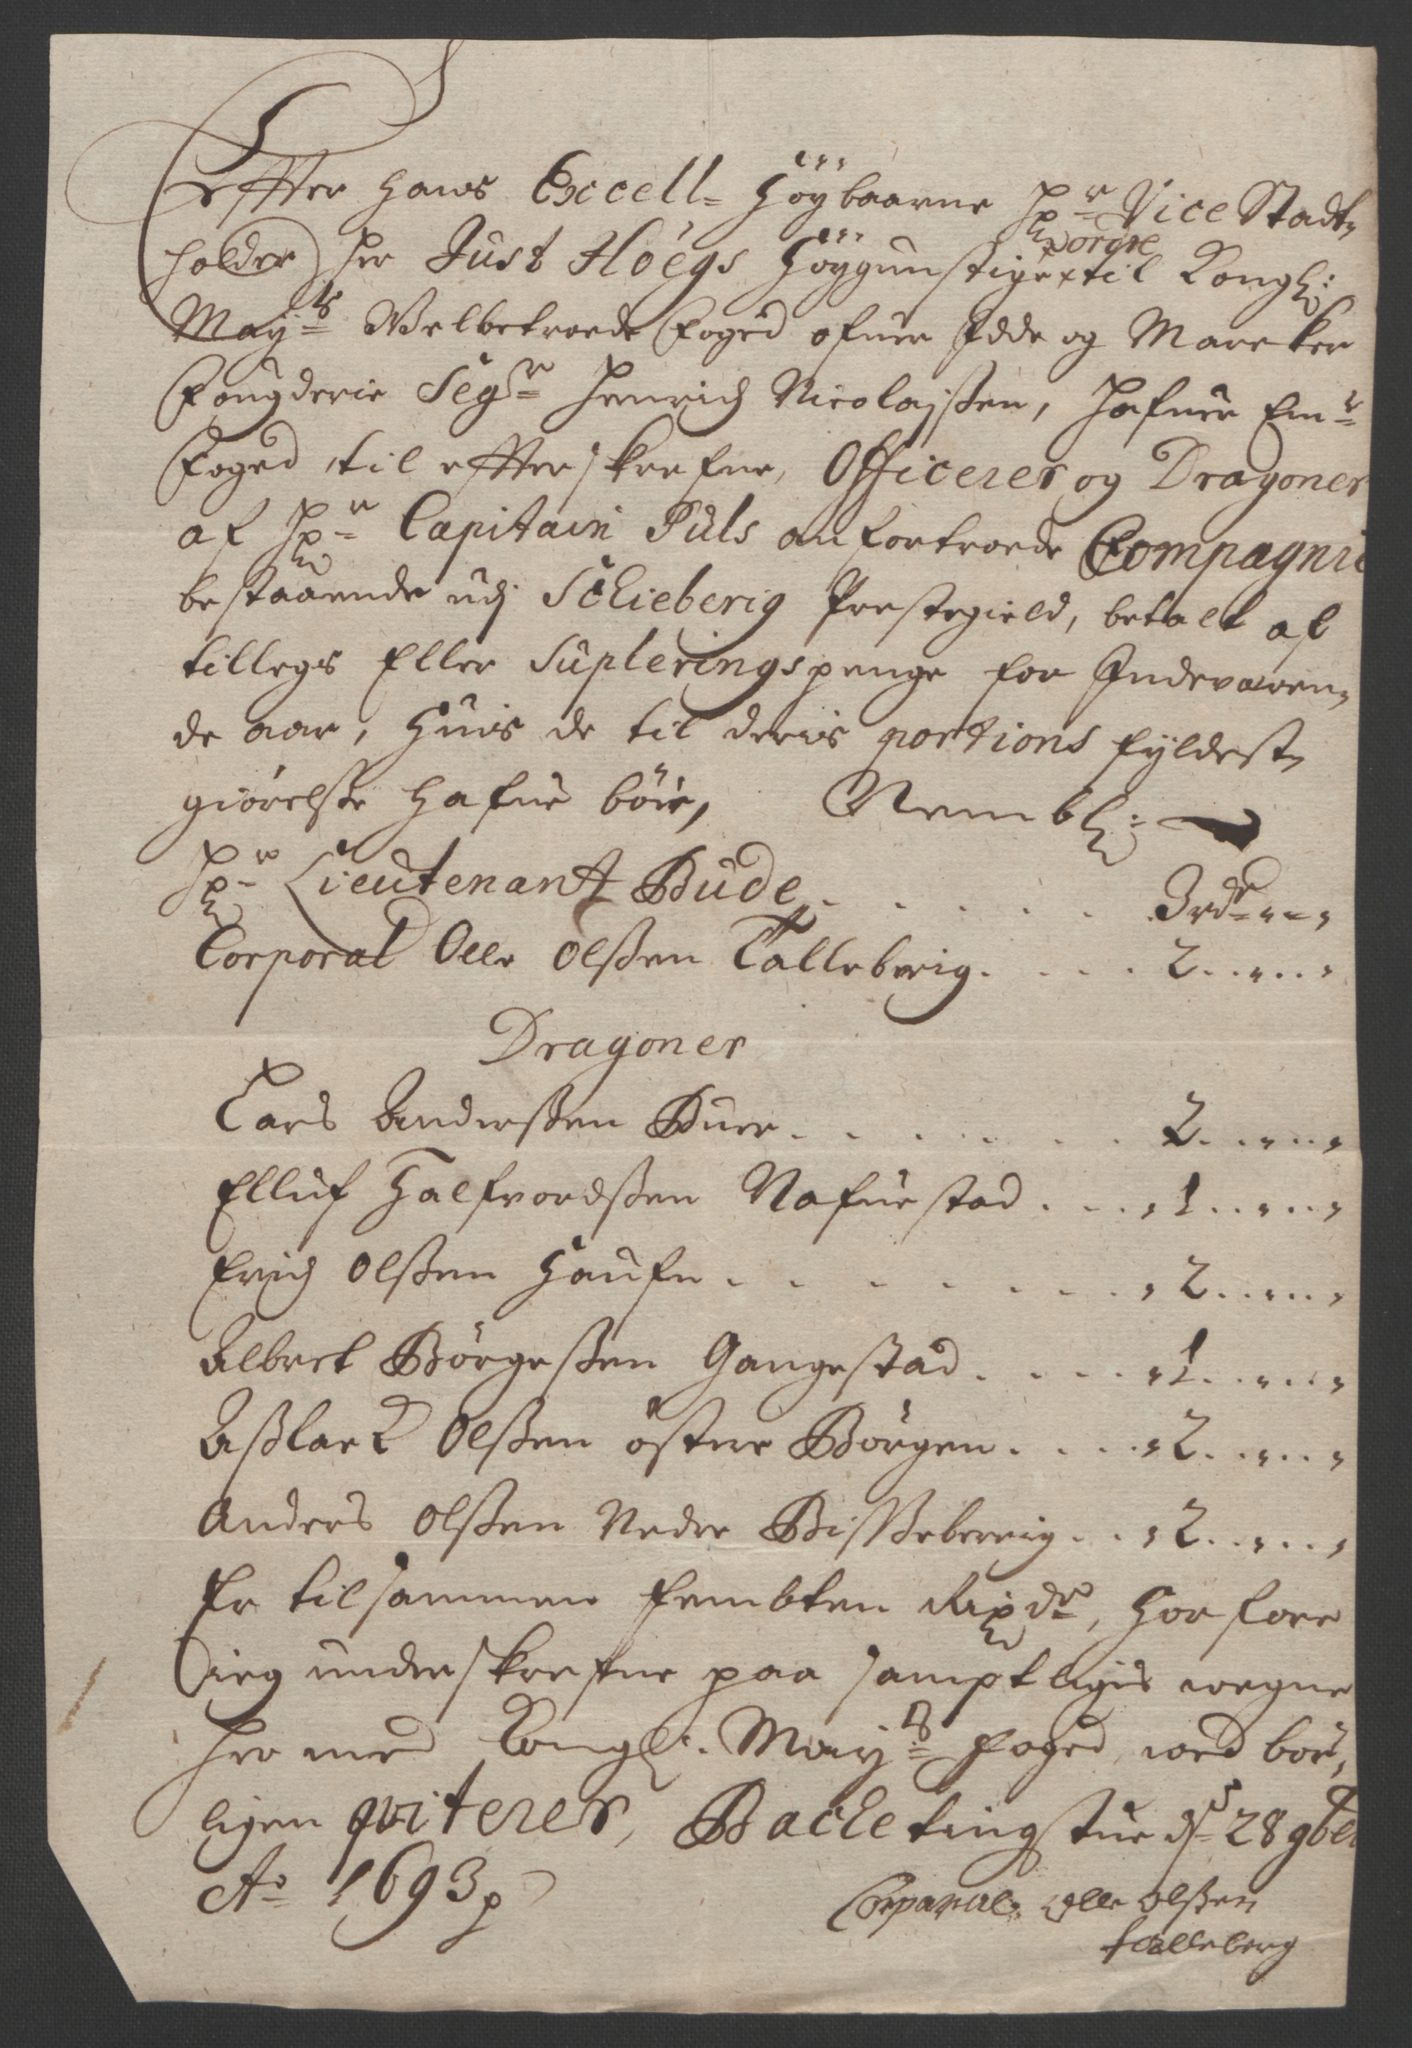 Effter Hans Excell= Höybaarne Hr= Vice Stadt=
holder Her Just Höegs Höygunstige ordre til Kongl:
Mayts Velbetroede Foged ofuer Idde og Marcker
Fougderie Segr= Henrich Nicolajssen, Hafuer Em=r
Foged til effterskrefne, Officerer og Dragoner
af Hr= Capitain Puls anfortroede Compagnie
bestaaende udj Schieberig Prestegield, betalt af
tillegs Eller Supleringspenge for Indeværen=
de aar, Huis de til deris portions fyldest=
giörelsse Hafue böer, Nembl:
Hr= Lieutenant Bude . . . . . 3 rdr= „ - „
Corporal Olle Olssen Talleberig . . . 2 . . „ . . „
Dragoner
Lars Anderssen Buer . . . . . . 2 . . „ . . „
Elluf Halfvordssen Nafuestad . . . „ 1 . . „ . . „
Erich Olssen Haufn . . . . . . „ 2 . . „ . . „
Albret Börgessen Gangestad . . . . „ 1 . . „ . . „
Asslack Olssen östre Börgen . . . . „ 2 . . „ . . „
Anders Olssen Nedre Bissseberrig . . „ 2 . . „ . . „
Er tilsammen Fembten Rixdr=, Hor fore
ieg underskrefne paa samptligis wegne
Her med Kongl. Mayts Foged wed bör=
ligen qviterer, Backe tingstue ds= 28 9ber
Ao= 1693 p
Corparal: olle olssen
talleberg